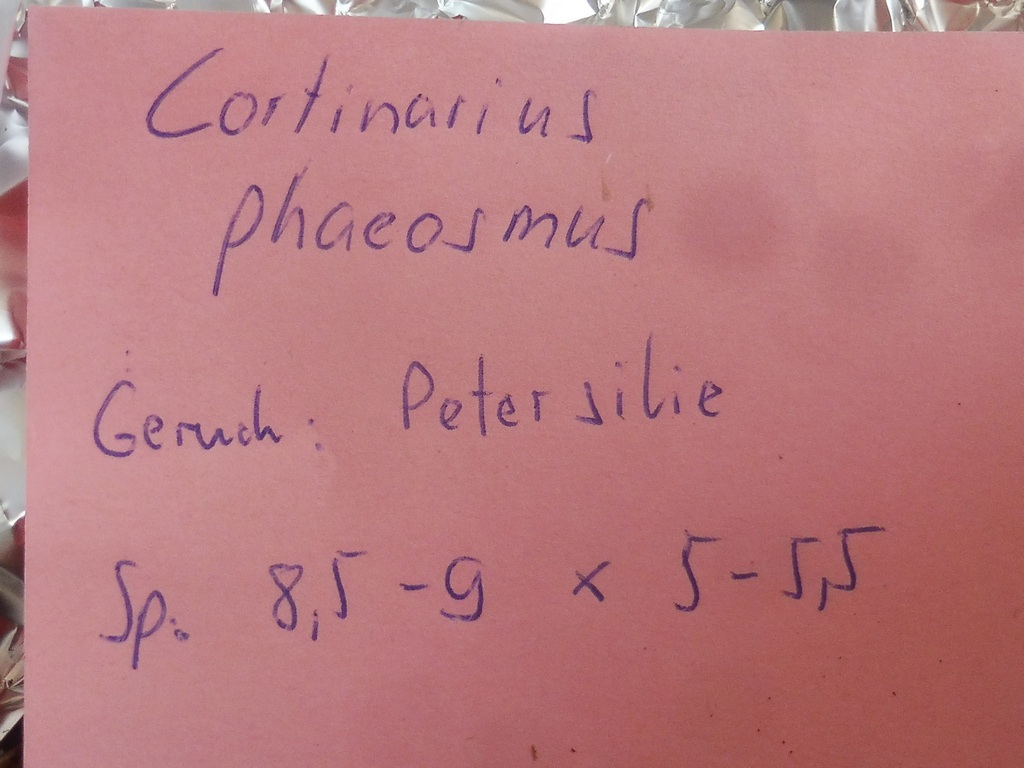 Cortinarius
phaeosmus
Geruch: Petersilie
Sp: 8,5 - 9 x 5 - 5,5